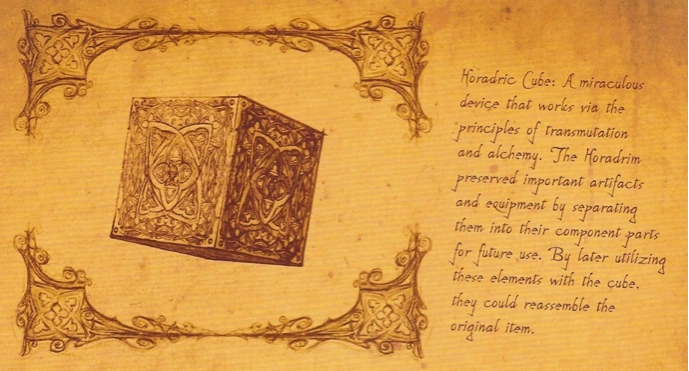 Horadric Cube: A miraculous
device that works via the
principles of transmutation
and alchemy. The Horadrim
preserved important artifacts
and equipment by separating
them into their component parts
for future use. By later utilizing
these elements with the cube,
they could reassemble the
original item.